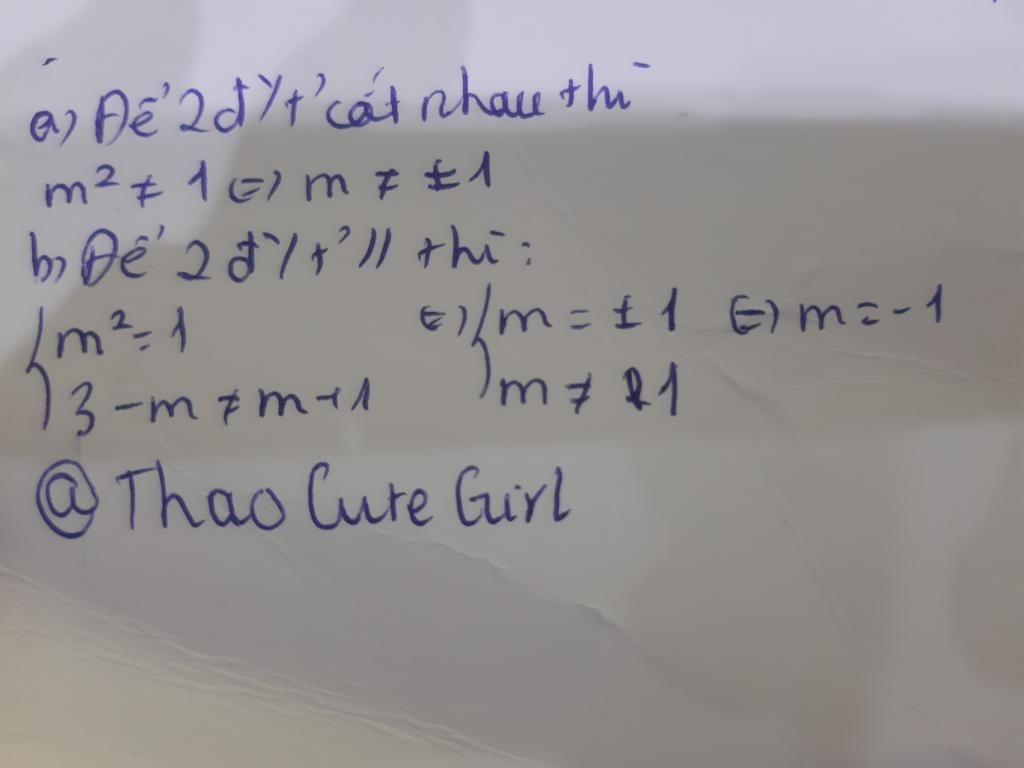 a) Để 2 đ/t' cắt nhau thì
m² ≠ 1 <=> m ≠ ±1
b) Để 2 đ/t' // thì:
{m² = 1 <=> {m = ±1 <=> m = -1
{3 - m ≠ m + 1 {m ≠ 1
@ Thao Cute Girl